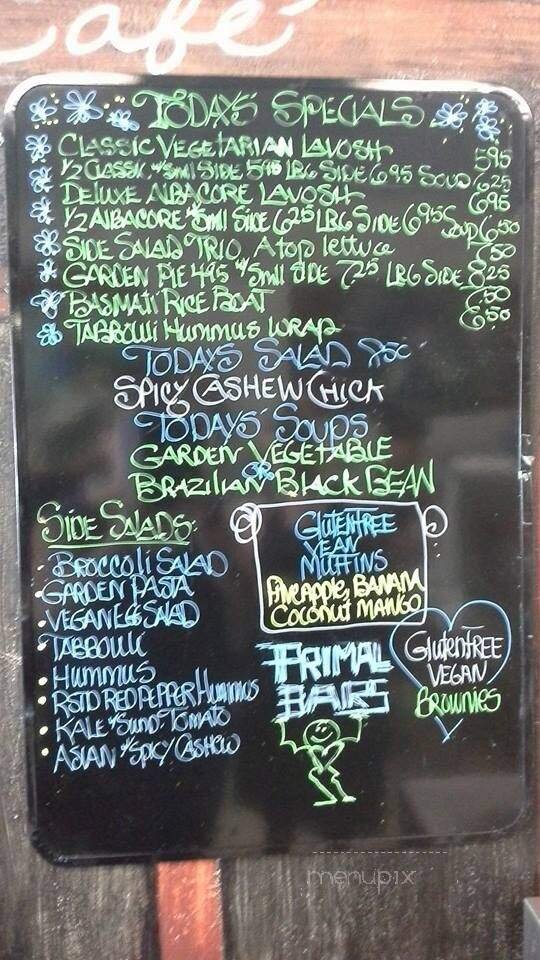 Café
TODAYS' SPECIALS
CLASSIC VEGETARIAN LAVOSH 595
1/2 CLASSIC w/ Smll SIDE 595 LRG SIDE 695 SOUP 625
DELUXE ALBACORE LAVOSH 695
1/2 ALBACORE w/ Smll SIDE 625 LRG SIDE 695 SOUP 650
SIDE SALAD TRIO, Atop lettuce 750
GARDEN PIE 495 w/ Smll SIDE 725 LRG SIDE 825
BASMATI RICE BOAT 750
TABBOULI HUMMUS WRAP 650
TODAYS' SALAD
SPICY CASHEW CHICK
TODAYS' SOUPS
GARDEN VEGETABLE
OR
BRAZILIAN BLACK BEAN
SIDE SALADS:
BROCCOLI SALAD
GARDEN PASTA
VEGAN EGG SALAD
TABBOULI
HUMMUS
RSTD RED PEPPER HUMMUS
KALE w/ SUND TOMATO
ASIAN w/ SPICY CASHEW
GLUTENFREE
VEAN
MUFFINS
PINEAPPLE, BANANA
COCONUT MANGO
PRIMAL
BARS
GLUTENFREE
VEGAN
BROWNIES
menupix